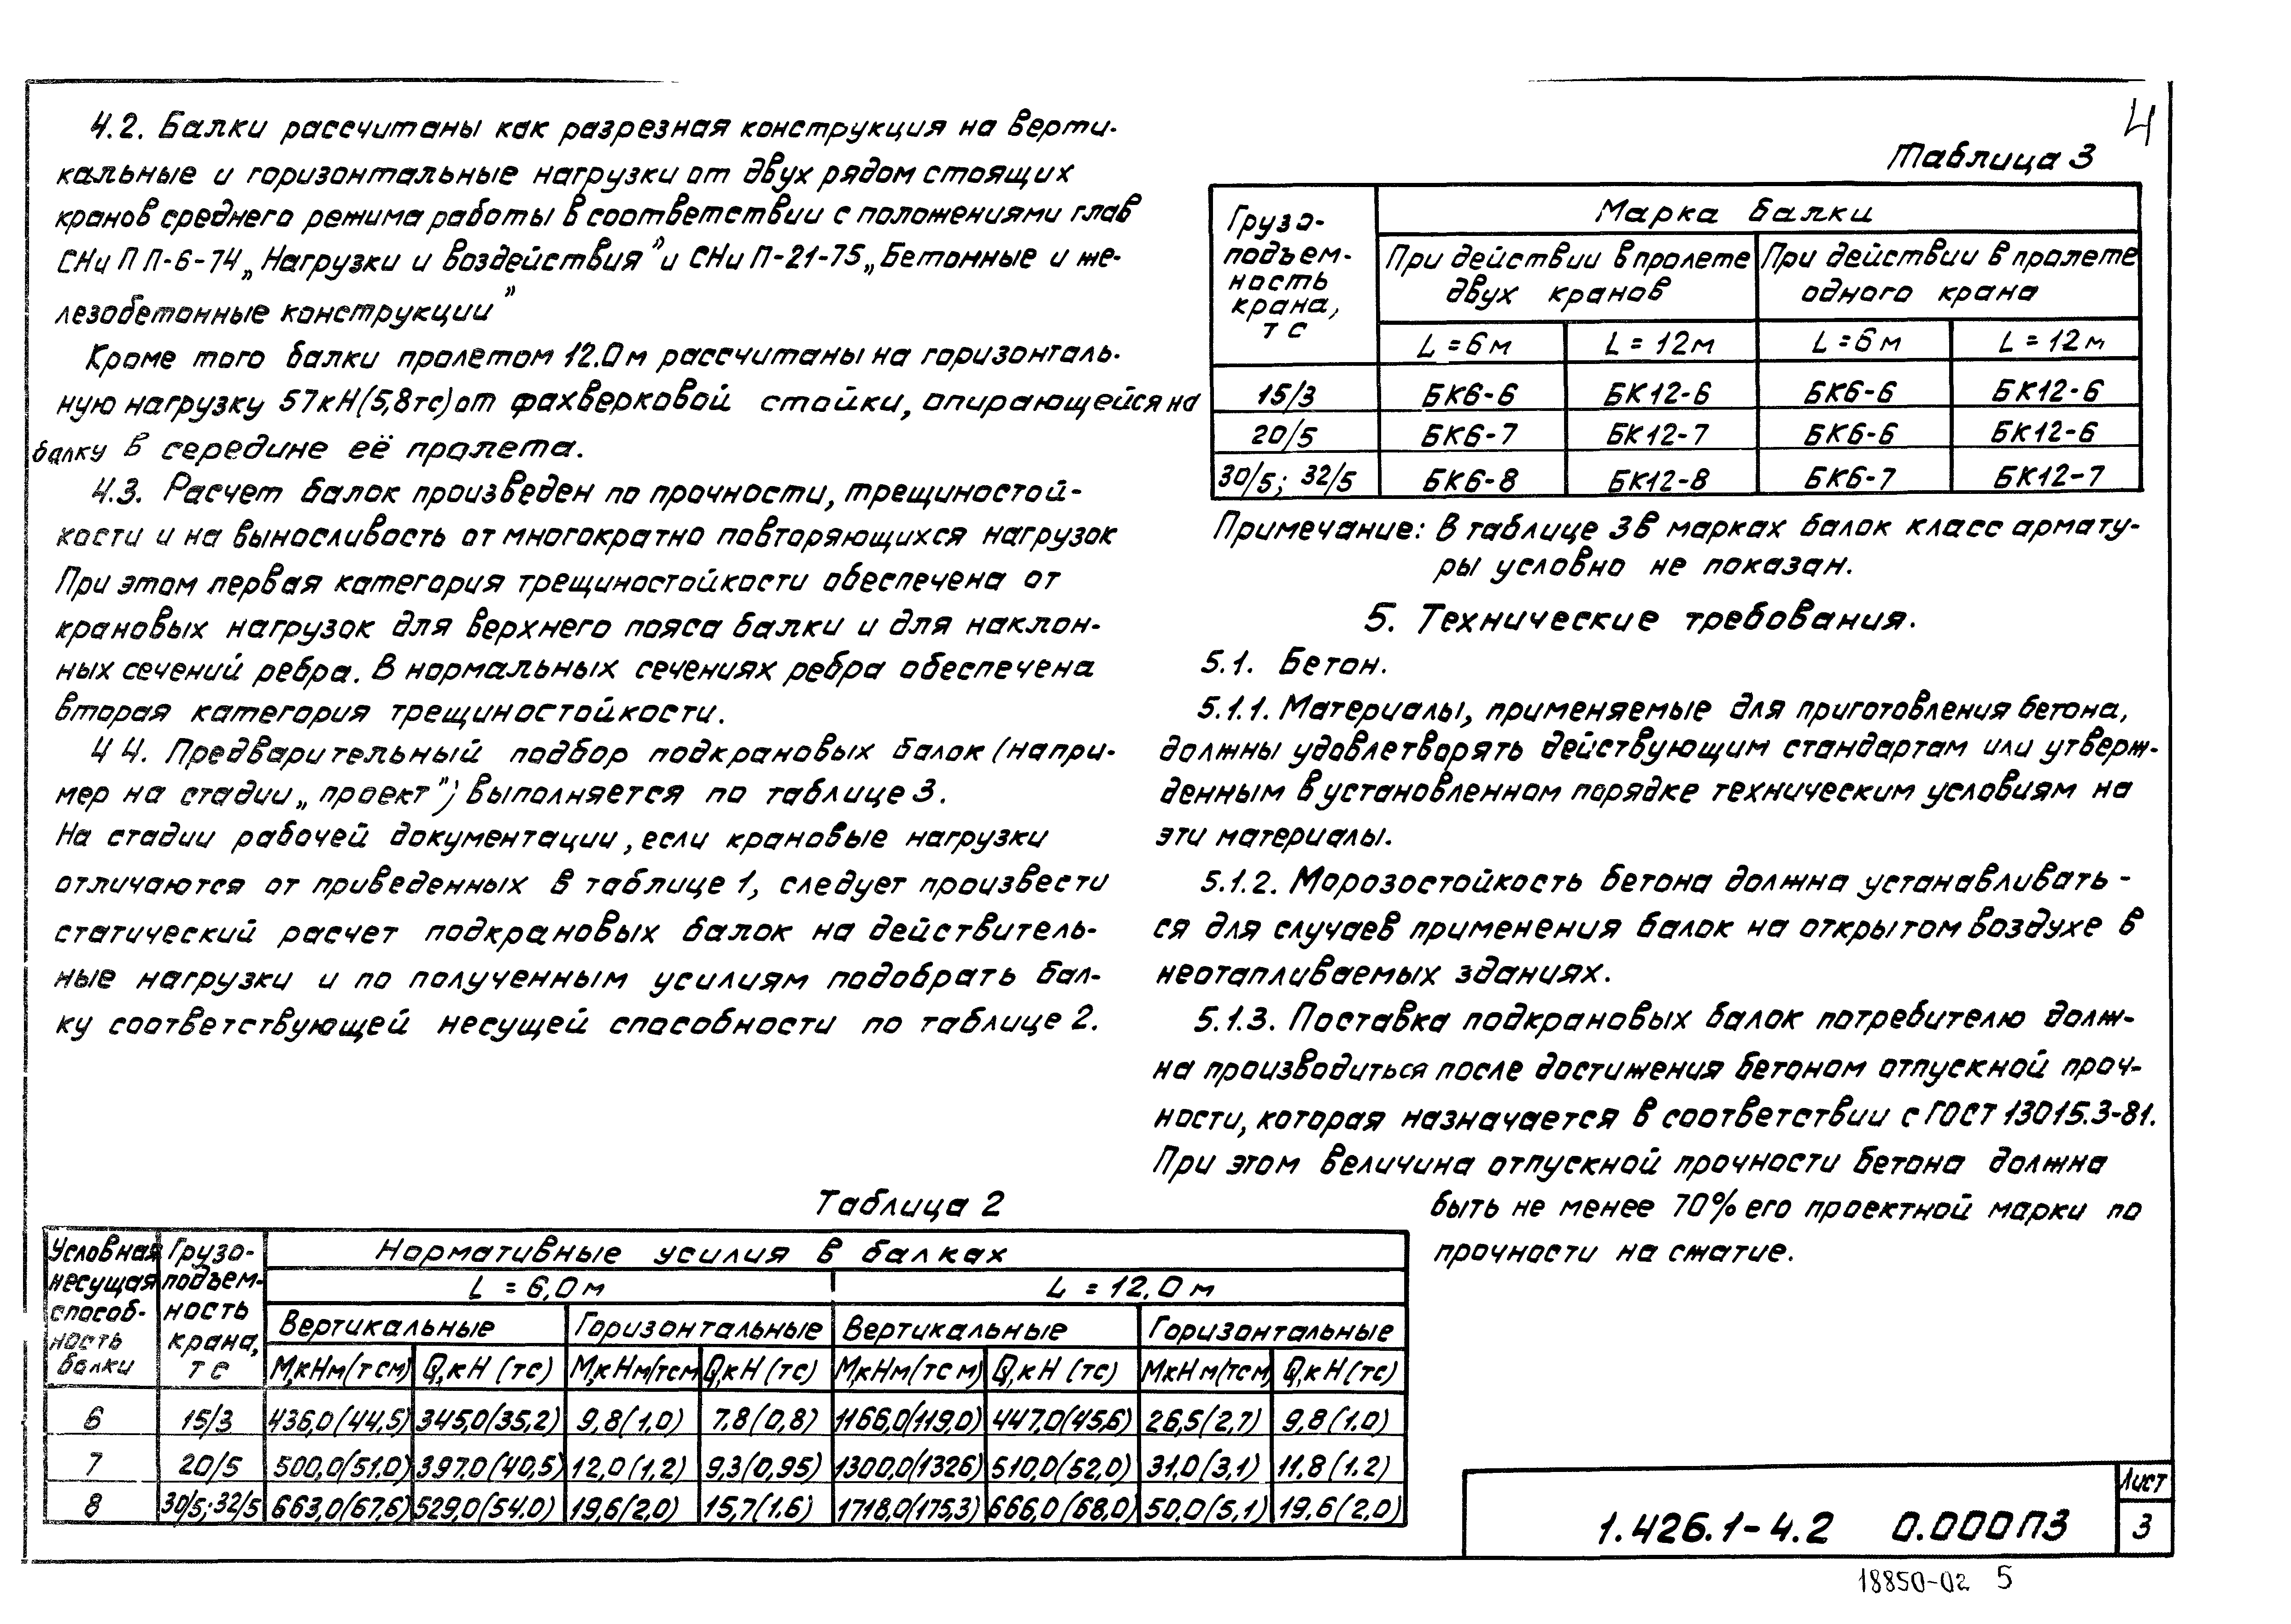 4.2. Балки рассчитаны как разрезная конструкция на верти-
кальные и горизонтальные нагрузки от двух рядом стоящих
кранов среднего режима работы в соответствии с положениями глав
СНиП П-6-74 „Нагрузки и воздействия" и СНиП-21-75 „Бетонные и же-
лезобетонные конструкции"
Кроме того балки пролетом 12.0м рассчитаны на горизонталь-
ную нагрузку 57кН(5,8тс) от фахверковой стойки, опирающейся на
балку в середине её пролета.
4.3. Расчет балок произведен по прочности, трещиностой-
кости и на выносливость от многократно повторяющихся нагрузок
При этом первая категория трещиностойкости обеспечена от
крановых нагрузок для верхнего пояса балки и для наклон-
ных сечений ребра. В нормальных сечениях ребра обеспечена
вторая категория трещиностойкости.
4 4. Предварительный подбор подкрановых балок (напри-
мер на стадии „проект") выполняется по таблице 3.
На стадии рабочей документации, если крановые нагрузки
отличаются от приведенных в таблице 1, следует произвести
статический расчет подкрановых балок на действитель-
ные нагрузки и по полученным усилиям подобрать бал-
ку соответствующей несущей способности по таблице 2.
Таблица 2
Условная несущая способ-ность балки | Грузо-подъем-ность крана, тс | Нормативные усилия в балках
L = 6,0м | L = 12,0м
Вертикальные | Горизонтальные | Вертикальные | Горизонтальные
М,кНм(тсм) | Q,кН(тс) | М,кНм(тсм | Q,кН(тс) | М,кНм(тсм) | Q,кН(тс) | МкНм(тсм | Q,кН(тс)
6 | 15/3 | 436,0(44,5) | 345,0(35,2) | 9,8(1,0) | 7.8(0,8) | 1166,0(119,0) | 447,0(45,6) | 26,5(2,7) | 9,8(1.0)
7 | 20/5 | 500,0(51,0) | 397,0(40,5) | 12,0(1,2) | 9,3(0,95) | 1300,0(1326) | 510,0(52,0) | 31,0(3,1) | 11,8(1.2)
8 | 30/5;32/5 | 663,0(67,6) | 529,0(54.0) | 19,6(2,0) | 15,7(1.6) | 1718,0(175,3) | 666,0(68,0) | 50,0(5,1) | 19,6(2,0)
4
Таблица 3
Грузо-подъем-ность крана, тс | Марка балки
При действии в пролете двух кранов | При действии в пролете одного крана
L=6м | L=12м | L=6м | L=12м
15/3 | БК6-6 | БК12-6 | БК6-6 | БК12-6
20/5 | БК6-7 | БК12-7 | БК6-6 | БК12-6
30/5; 32/5 | БК6-8 | БК12-8 | БК6-7 | БК12-7
Примечание: В таблице 3 в марках балок класс армату-
ры условно не показан.
5. Технические требования.
5.1. Бетон.
5.1.1. Материалы, применяемые для приготовления бетона,
должны удовлетворять действующим стандартам или утверж-
денным в установленном порядке техническим условиям на
эти материалы.
5.1.2. Морозостойкость бетона должна устанавливать-
ся для случаев применения балок на открытом воздухе в
неотапливаемых зданиях.
5.1.3. Поставка подкрановых балок потребителю долж-
на производиться после достижения бетоном отпускной проч-
ности, которая назначается в соответствии с ГОСТ 13015.3-81.
При этом величина отпускной прочности бетона должна
быть не менее 70% его проектной марки по
прочности на сжатие.
1.426.1-4.2 0.000ПЗ
Лист
3
18850-02 5